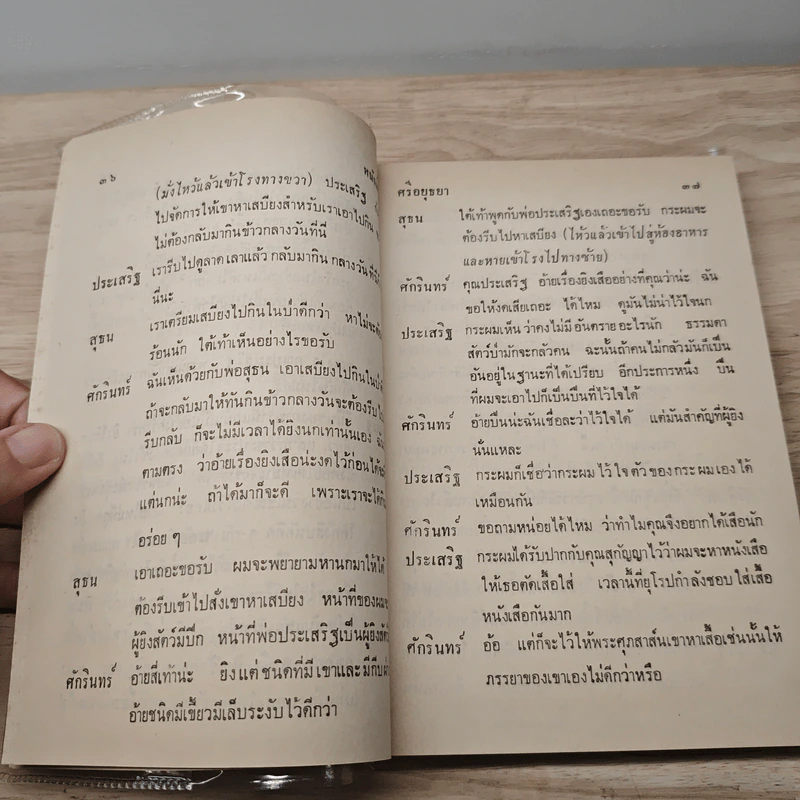 ๓๖
(มั่งไหว้แล้วเข้าโรงทางขวา) ประเสริฐ
ไปจัดการให้เขาหาเสบียงสำหรับเราเอาไปกิน
ไม่ต้องกลับมากินข้าวกลางวันที่นี่
ประเสริฐ เรารีบไปดูลาดเลาแล้ว กลับมากิน กลางวันที่
นี่นะ
สุธน เราเตรียมเสบียงไปกินในป่าดีกว่า หาไม่จะ
ร้อนนัก ใต้เท้าเห็นอย่างไรขอรับ
ศักรินทร์ ฉันเห็นด้วยกับพ่อสุธน เอาเสบียงไปกินใน
ถ้าจะกลับมาให้ทันกินข้าวกลางวันจะต้องรีบ
รีบกลับ ก็จะไม่มีเวลาได้ยิงนกเท่านั้นเอง
ตามตรง ว่าอ้ายเรื่องยิงเสือน่ะงดไว้ก่อนได้
แต่นกน่ะ ถ้าได้มาก็จะดี เพราะเราจะได้
อร่อย ๆ
สุธน เอาเถอะขอรับ ผมจะพยายามหานกมาให้ได้
ต้องรีบเข้าไปสั่งเขาหาเสบียง หน้าที่ของผม
ผู้ยิงสัตว์มีปีก หน้าที่พ่อประเสริฐเป็นผู้ยิง
ศักรินทร์ อ้ายสี่เท้าน่ะ ยิงแต่ชนิดที่มีเขาและมีกีบ
อ้ายชนิดมีเขี้ยวมีเล็บระงับไว้ดีกว่า
ศรีอยุธยา ๓๗
สุธน ใต้เท้าพูดกับพ่อประเสริฐเองเถอะขอรับ กระผมจะ
ต้องรีบไปหาเสบียง (ไหว้แล้วเข้าไปสู่ห้องอาหาร
และหายเข้าโรงไปทางซ้าย)
ศักรินทร์ คุณประเสริฐ อ้ายเรื่องยิงเสืออย่างที่คุณว่าน่ะ ฉัน
ขอให้งดเสียเถอะ ได้ไหม ดูมันไม่น่าไว้ใจนก
ประเสริฐ กระผมเห็นว่าคงไม่มีอันตรายอะไรนัก ธรรมดา
สัตว์ป่ามักจะกลัวคน ฉะนั้นถ้าคนไม่กลัวมันก็เป็น
อันอยู่ในฐานะที่ได้เปรียบ อีกประการหนึ่ง ปืน
ที่ผมจะเอาไปก็เป็นปืนที่ไว้ใจได้
ศักรินทร์ อ้ายปืนน่ะฉันเชื่อละว่าไว้ใจได้ แต่มันสำคัญที่ผู้ยิง
นั่นแหละ
ประเสริฐ กระผมก็เชื่อว่ากระผมไว้ใจตัวของกระผมเองได้
เหมือนกัน
ศักรินทร์ ขอถามหน่อยได้ไหม ว่าทำไมคุณจึงอยากได้เสือนัก
ประเสริฐ กระผมได้รับปากกับคุณสุกัญญาไว้ว่าผมจะหาหนังเสือ
ให้เธอตัดเสื้อใส่ เวลานี้ที่ยุโรปกำลังชอบใส่เสื้อ
หนังเสือกันมาก
ศักรินทร์ อ้อ แต่ก็จะไว้ให้พระศุภสาส์นเขาหาเสื้อเช่นนั้นให้
ภรรยาของเขาเองไม่ดีกว่าหรือ